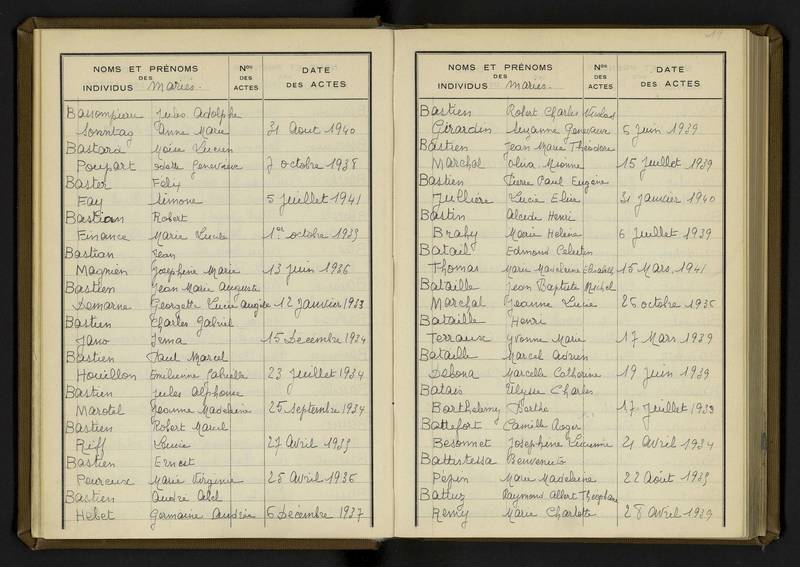 NOMS ET PRÉNOMS
DES
INDIVIDUS Mariés.
Nos
DES
ACTES
DATE
DES ACTES
Bassompierre Jules Adolphe
Sonntag Anne Marie 31 Aout 1940
Bastard Moïse Lucien
Poupart Odette Geneviève 7 octobre 1938
Baster Félix
Fay Simone 5 juillet 1941
Bastian Robert
Finance Marie Lucile 1er octobre 1935
Bastian Jean
Magnien Joséphine Marie 13 juin 1936
Bastien Jean Marie Auguste
Demarne Georgette Lucie 12 janvier 1933
Bastien Charles Gabriel
Jano Irma 15 Décembre 1934
Bastien Paul Marcel
Houillon Emilienne Gabrielle 23 juillet 1934
Bastien Jules Alphonse
Marotel Jeanne Madeleine 25 septembre 1934
Bastien Robert Marcel
Riff Lucie 27 Avril 1935
Bastien Ernest
Peureux Marie Virginie 25 Avril 1936
Bastien André Abel
Hebet Germaine Andrée 6 Décembre 1937
19
NOMS ET PRÉNOMS
DES
INDIVIDUS Mariés.
Nos
DES
ACTES
DATE
DES ACTES
Bastien Robert Charles Nicolas
Girardin Suzanne Geneviève 5 juin 1939
Bastien Jean Marie Théodore
Marchal Olria 15 juillet 1939
Bastien Pierre Paul Eugène
Jullière Lucie Elise 31 janvier 1940
Bastin Alcide Henri
Brahy Marie Hélène 6 juillet 1939
Batail Edmond Célestin
Thomas Marie Madeleine Elisabeth 15 Mars 1941
Bataille Jean Baptiste Michel
Marchal Jeanne Lucie 26 octobre 1935
Bataille Henri
Terraux Yvonne Marie 17 Mars 1939
Bataille Marcel Adrien
Debona Marcelle Catherine 19 juin 1939
Batais Ulysse Charles
Barthelemy Berthe 17 juillet 1933
Battefort Camille Roger
Besonnet Joséphine Lucienne 21 Avril 1934
Battistessa Benvenuto
Pépin Marie Madeleine 22 Août 1935
Battuz Raymond Albert Théophane
Remy Marie Charlotte 28 Avril 1939